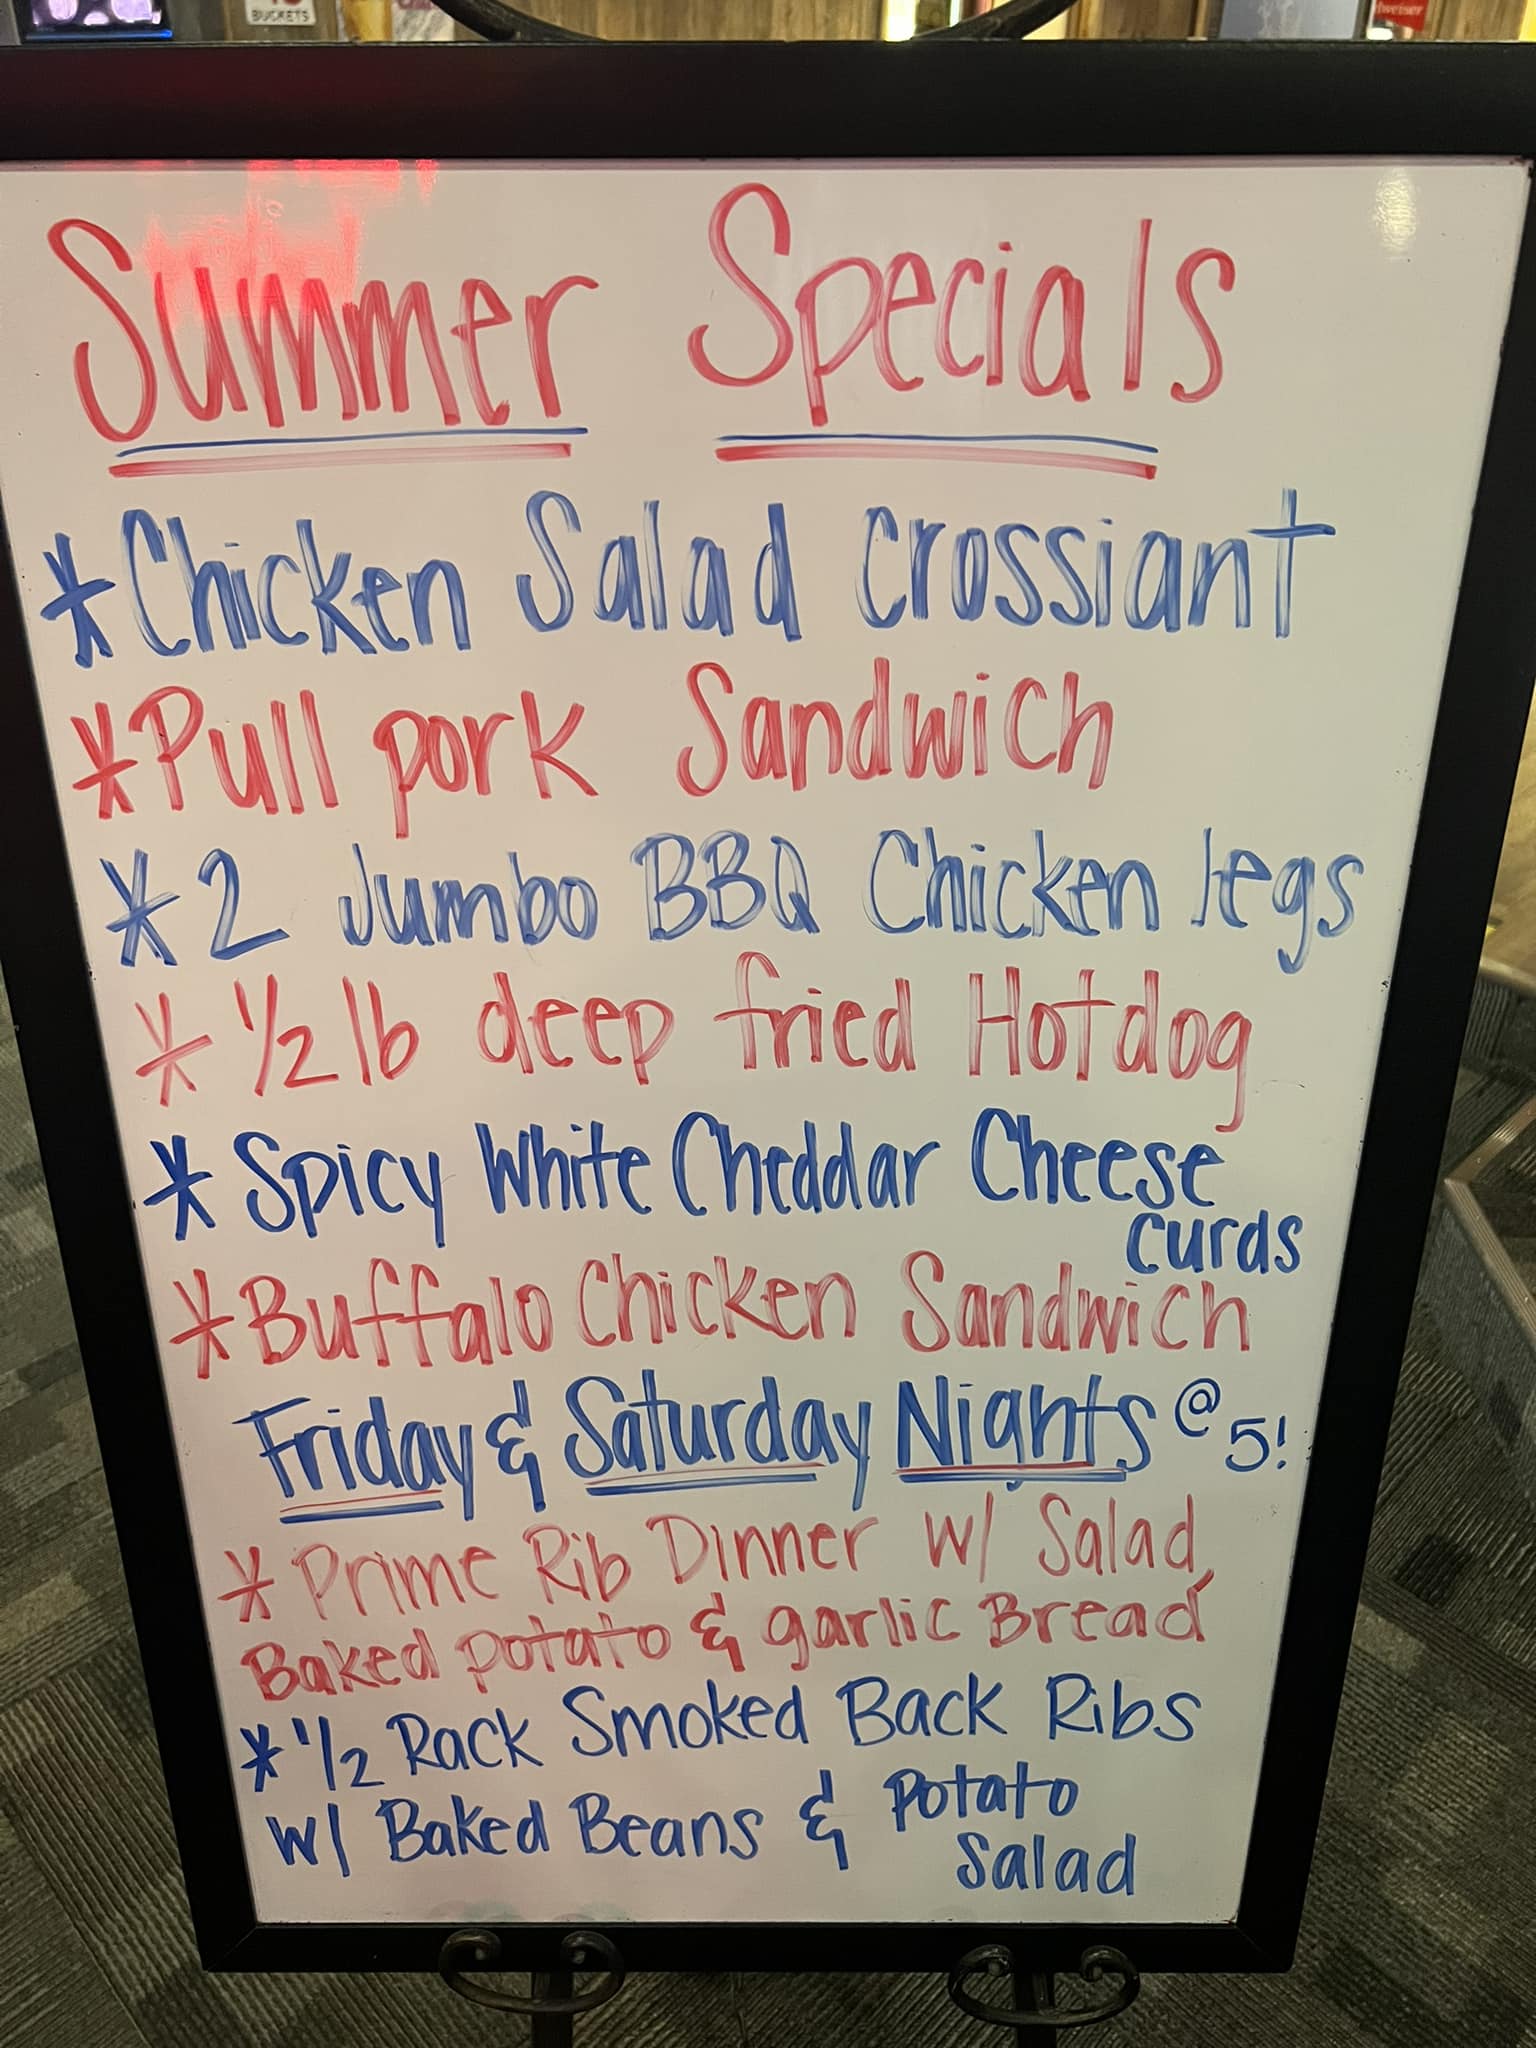 BUCKETS
dweiser
Summer Specials
*Chicken Salad Crossiant
*Pull pork Sandwich
*2 Jumbo BBQ Chicken legs
*1/2 lb deep fried Hotdog
*Spicy White Cheddar Cheese
Curds
*Buffalo Chicken Sandwich
Friday & Saturday Nights @ 5!
*Prime Rib Dinner w/ Salad,
Baked potato & garlic Bread
*1/2 Rack Smoked Back Ribs
w/ Baked Beans & Potato
Salad